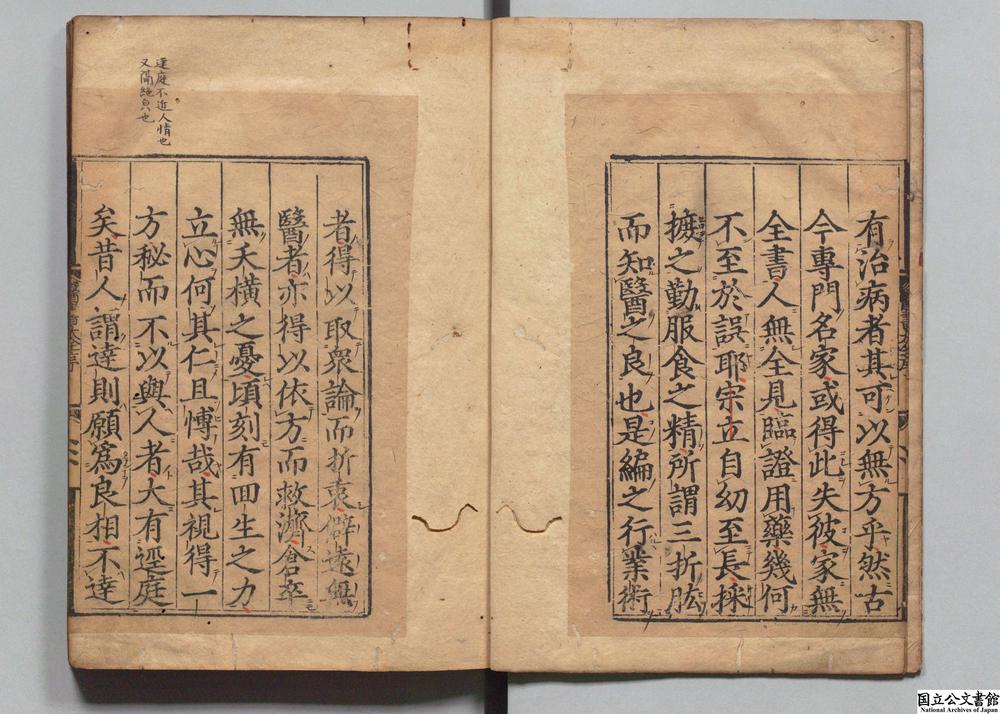 有治病者其可以無方乎然古
今專門名家或得此失彼家無
全書人無全見臨證用藥幾何
不至於誤耶宗立自幼至長採
摭之勤服食之精所謂三折肱
而知醫之良也是編之行業術
者得以取衆論而折衷僻遠無
醫者亦得以依方而救濟倉卒
無夭橫之憂頃刻有回生之力
立心何其仁且愽哉其視得一
方秘而不以與人者大有逕庭
矣昔人謂達則願爲良相不達
逕庭不近人情也
又隔絶皃也
国立公文書館
National Archives of Japan